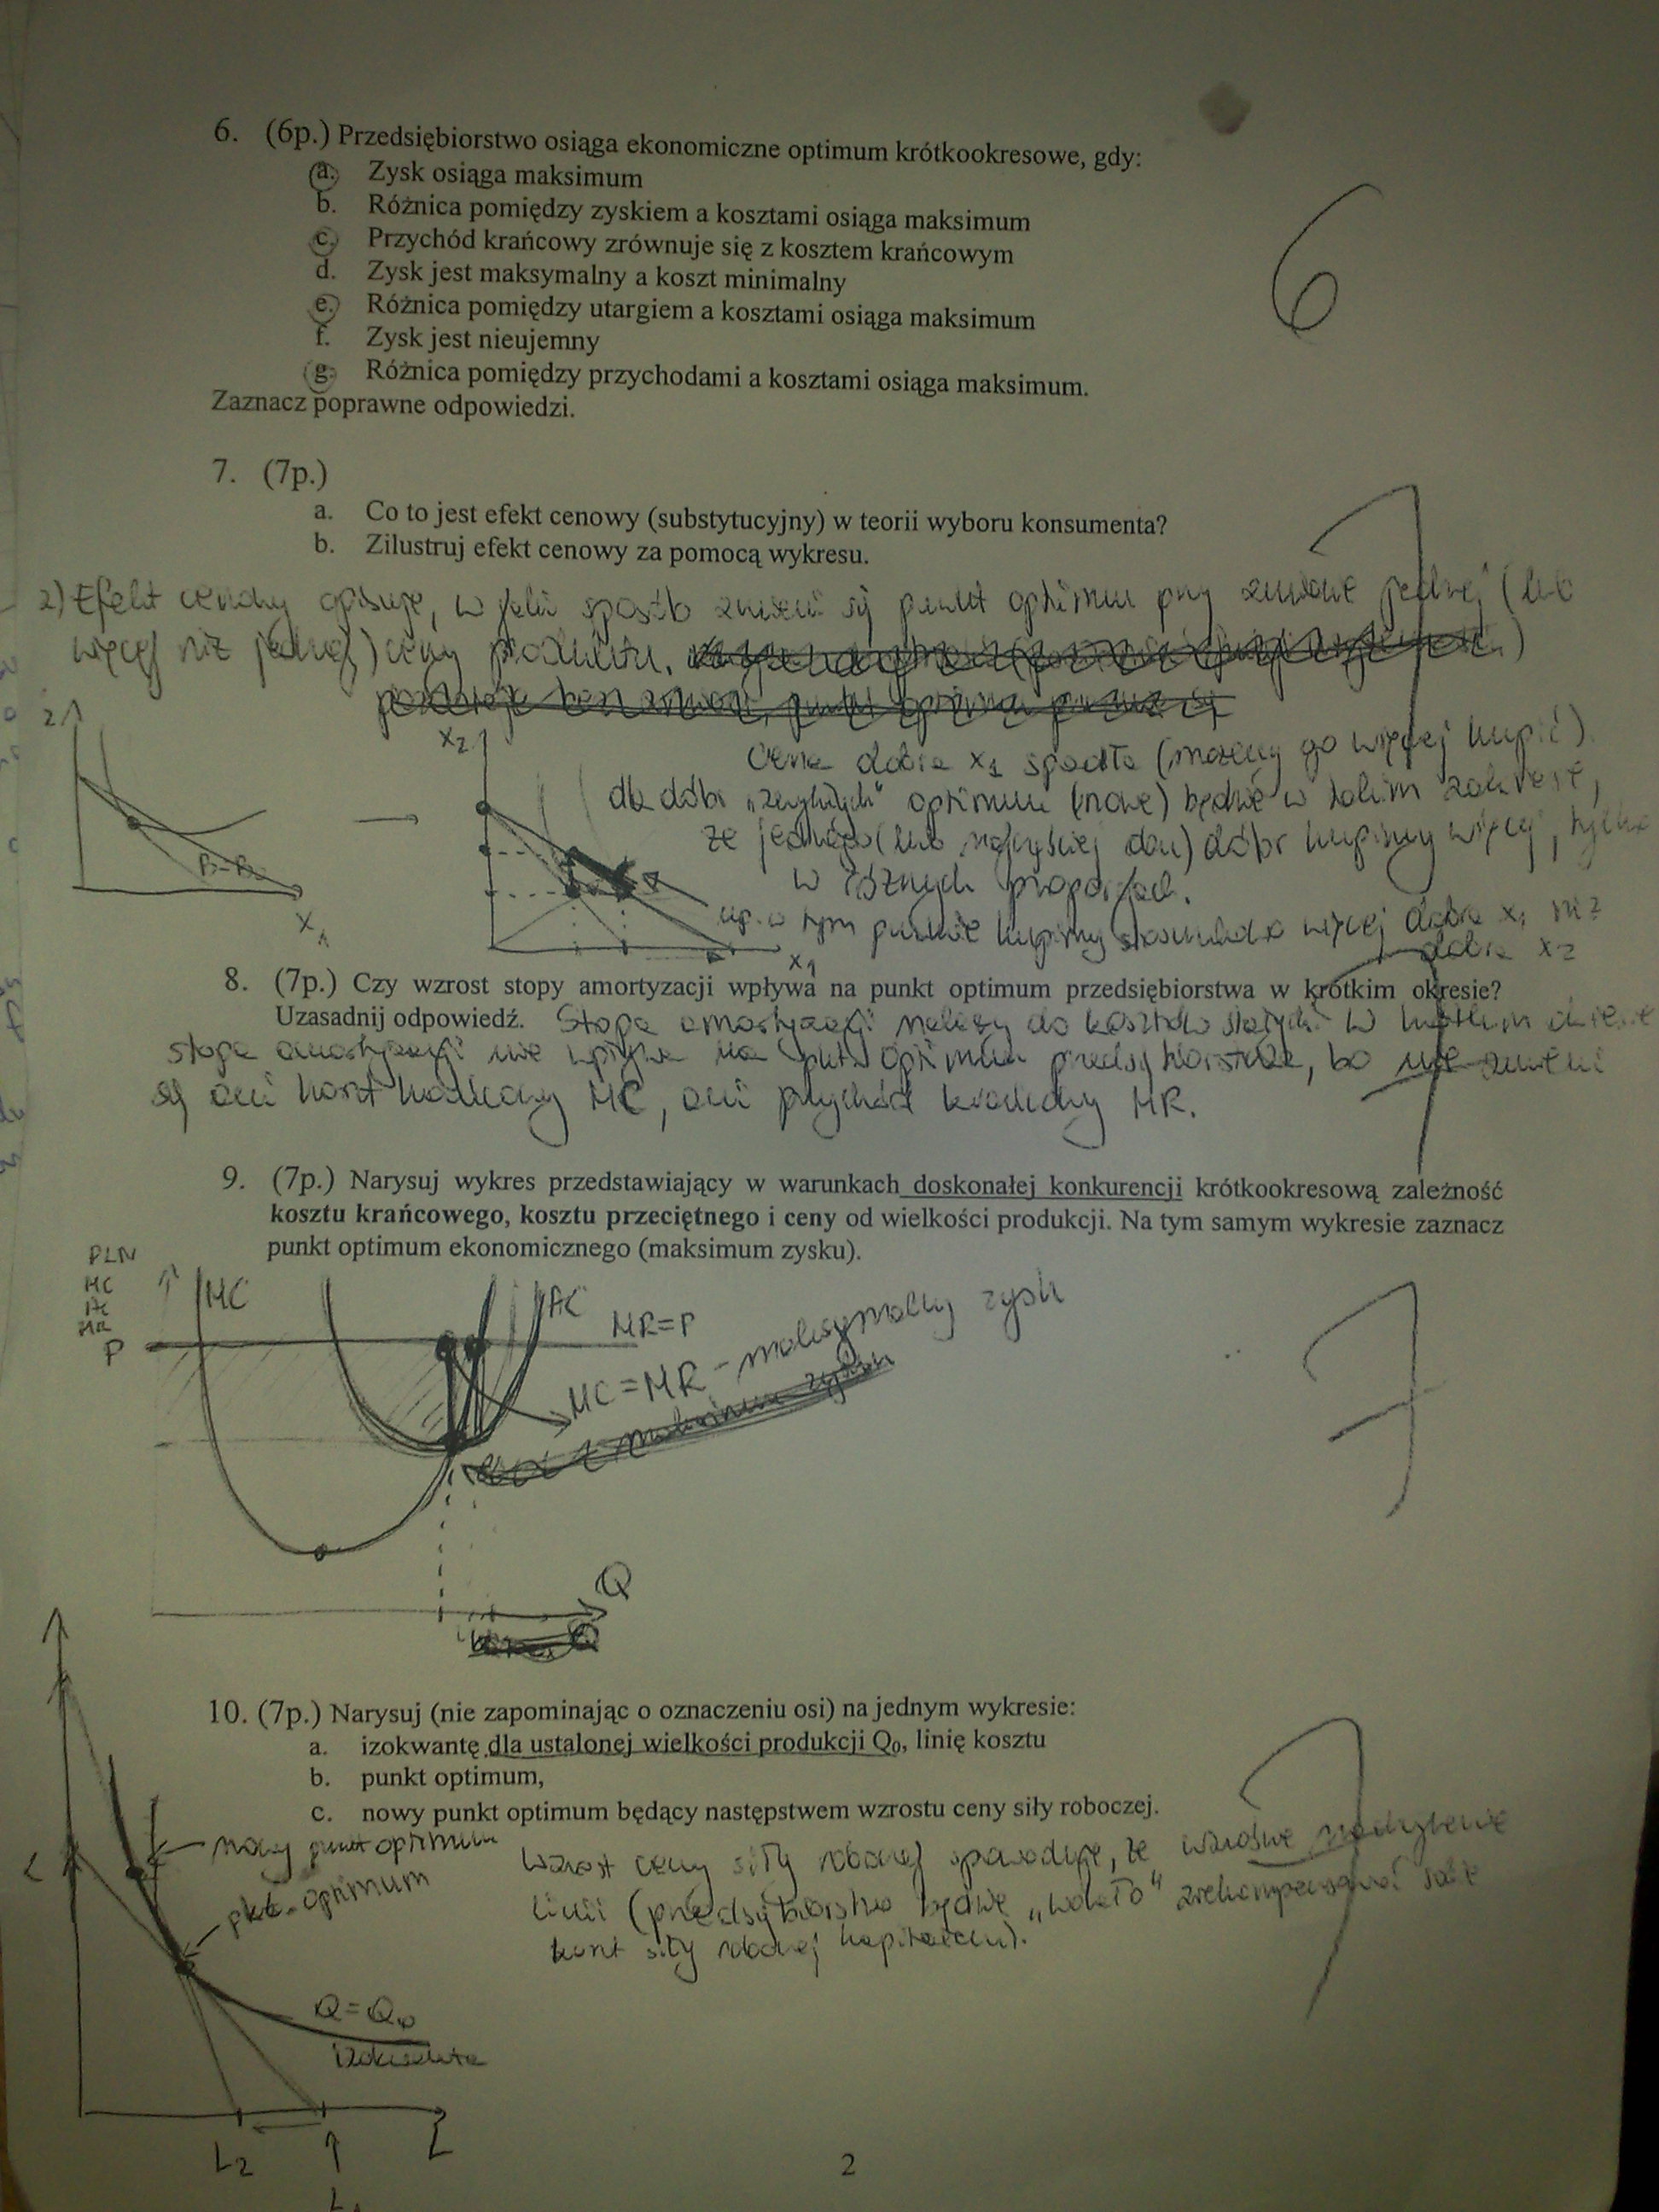 6. (6p.) Przedsiębiorstwo osiąga ekonomiczne optimum krótkookresowe, gdy:
a. Zysk osiąga maksimum
b. Różnica pomiędzy zyskiem a kosztami osiąga maksimum
c. Przychód krańcowy zrównuje się z kosztem krańcowym
d. Zysk jest maksymalny a koszt minimalny
e. Różnica pomiędzy utargiem a kosztami osiąga maksimum
f. Zysk jest nieujemny
g. Różnica pomiędzy przychodami a kosztami osiąga maksimum.
Zaznacz poprawne odpowiedzi.
6
7. (7p.)
a. Co to jest efekt cenowy (substytucyjny) w teorii wyboru konsumenta?
b. Zilustruj efekt cenowy za pomocą wykresu.
7
a) Efekt cenowy opisuje, w jaki sposób zmieni się punkt optimum przy zmianie jednej (lub
więcej niż jednej) ceny produktu.
X2
Cena dobra x1 spadła (możemy go więcej kupić)
dla dóbr "zwykłych" optimum (nowe) będzie w takim zakresie,
że jednego (lub najczęściej dwu) dóbr kupimy więcej, tylko
w różnych proporcjach.
np. w tym punkcie kupimy stosunkowo więcej dobra x1 niż
dobra x2
X1
X1
8. (7p.) Czy wzrost stopy amortyzacji wpływa na punkt optimum przedsiębiorstwa w krótkim okresie?
Uzasadnij odpowiedź. Stopa amortyzacji należy do kosztów stałych. W krótkim okresie
stopa amortyzacji nie wpływa na pkt. optimum przedsiębiorstwa, bo nie zmieni
się ani koszt krańcowy MC, ani przychód krańcowy MR.
7
9. (7p.) Narysuj wykres przedstawiający w warunkach doskonałej konkurencji krótkookresową zależność
kosztu krańcowego, kosztu przeciętnego i ceny od wielkości produkcji. Na tym samym wykresie zaznacz
punkt optimum ekonomicznego (maksimum zysku).
PLN
MC
AC
MR
P
MC
AC
MR=P
MC=MR - maksymalny zysk
Q
7
10. (7p.) Narysuj (nie zapominając o oznaczeniu osi) na jednym wykresie:
a. izokwantę dla ustalonej wielkości produkcji Q0, linię kosztu
b. punkt optimum,
c. nowy punkt optimum będący następstwem wzrostu ceny siły roboczej.
7
nowy punkt optimum
pkt. optimum
Wzrost ceny siły roboczej spowoduje, że wzrośnie nachylenie
linii (przedsiębiorstwo będzie "wolało" zrekompensować sobie
koszt siły roboczej kapitałem).
Q=Q0
izokwanta
L2
L1
L
2